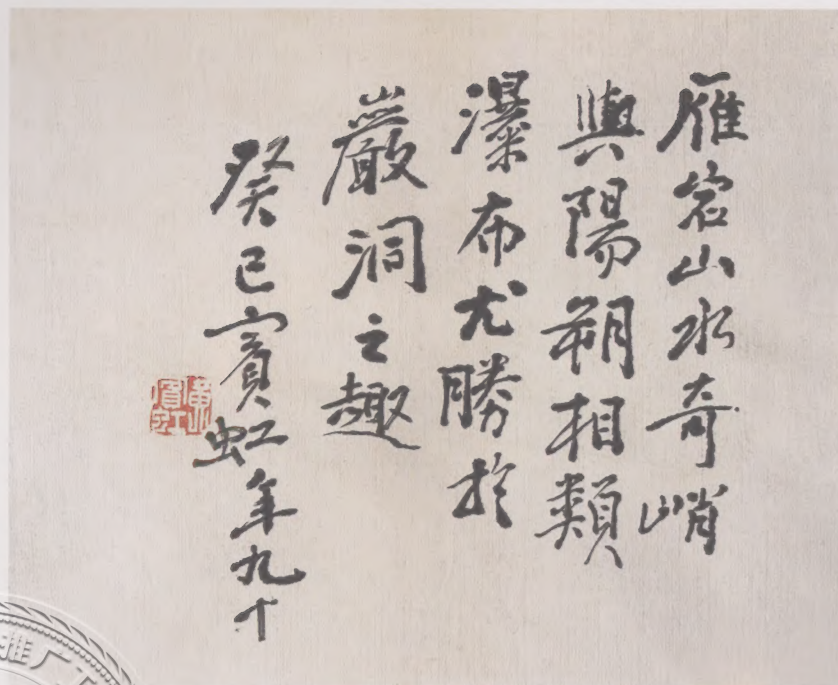 雁宕山水奇峭
與陽朔相類
瀑布尤勝於
巖洞之趣
癸巳賓虹年九十
黃賓虹
推广